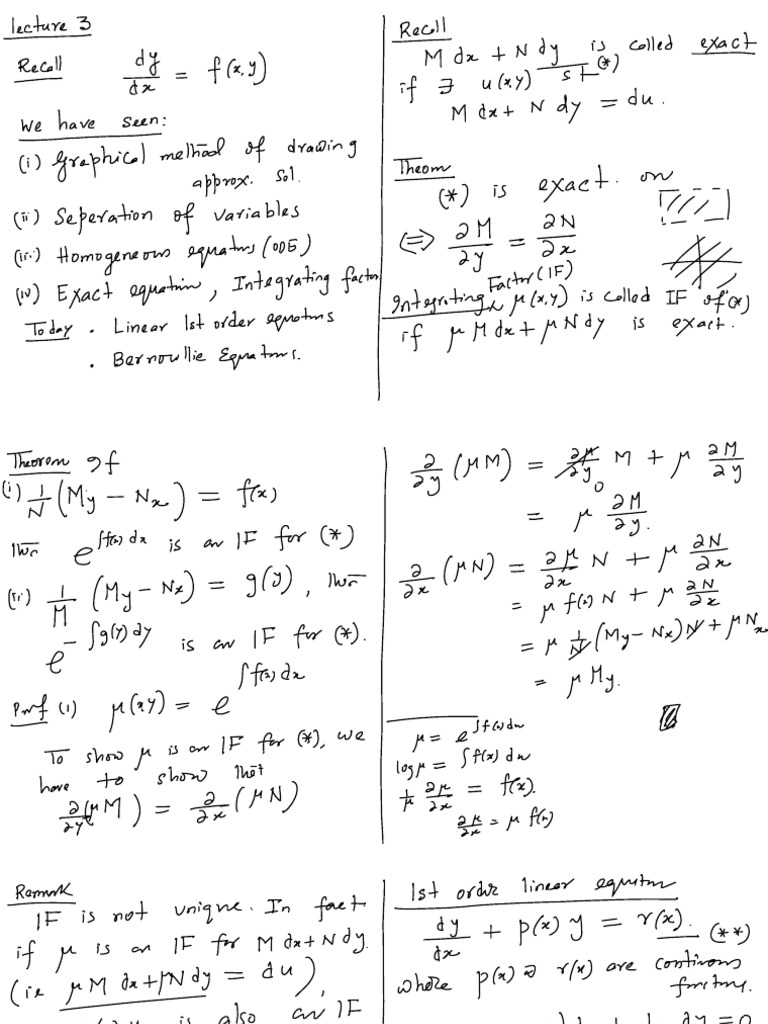 lecture 3
Recall dy/dx = f(x,y)
We have seen:
(i) Graphical method of drawing
approx. sol.
(ii) Seperation of variables
(iii) Homogeneous equations (ODE)
(iv) Exact equation, Integrating factor
Today . Linear 1st order equations
. Bernoullie Equations.
Recall
M dx + N dy is called exact
(*)
if ∃ u(x,y) st
M dx + N dy = du.
Theorem
(*) is exact on
⇔ ∂M/∂y = ∂N/∂x
Integrating Factor (IF) μ(x,y) is called IF of (*)
if μ M dx + μ N dy is exact.
Theorem If
(i) 1/N (My − Nx) = f(x)
then e^∫f(x)dx is an IF for (*)
(ii) 1/M (My − Nx) = g(y), then
e^−∫g(y)dy is an IF for (*).
Proof (i) μ(x,y) = e^∫f(x)dx
To show μ is an IF for (*), we
have to show that
∂/∂y (μM) = ∂/∂x (μN)
∂/∂y (μM) = ∂μ/∂y M + μ ∂M/∂y
0
= μ ∂M/∂y.
∂/∂x (μN) = ∂μ/∂x N + μ ∂N/∂x
= μ f(x) N + μ ∂N/∂x
= μ 1/N (My − Nx) N + μ Nx
= μ My.
μ = e^∫f(x)dx
log μ = ∫f(x) dx
1/μ ∂μ/∂x = f(x).
∂μ/∂x = μ f(x)
Remark
IF is not unique. In fact
if μ is an IF for M dx + N dy.
(ie μM dx + μN dy = du),
is also an IF
1st order linear equation
dy/dx + p(x) y = r(x). (**)
where p(x) & r(x) are continous
functions.
dy = 0